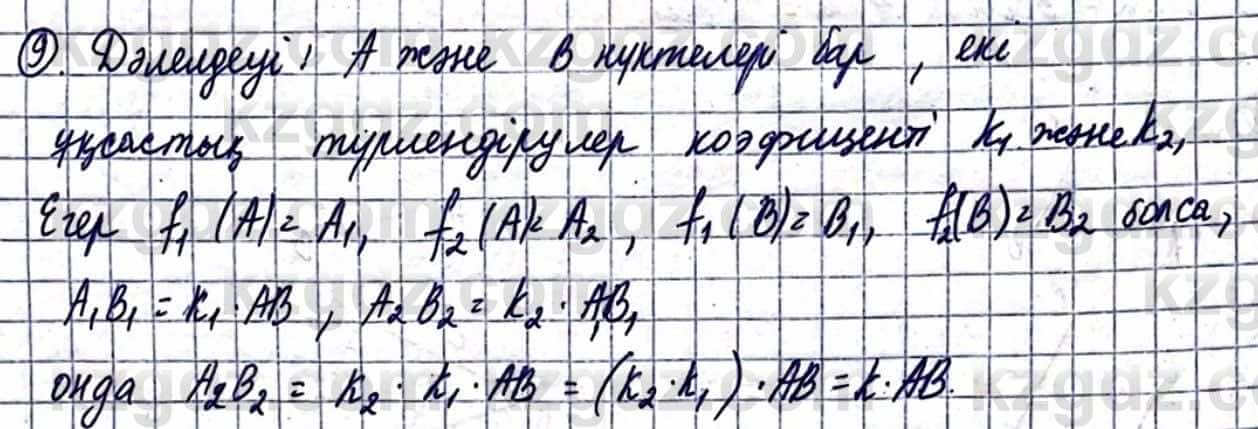 9. Дәлелдеуі: А және В нүктелері бар, екі
ұқсастық түрлендірулер коэфициенті k₁ және k₂,
Егер f₁(A) = A₁, f₂(A) = A₂, f₁(B) = B₁, f₂(B) = B₂ болса,
A₁B₁ = k₁ · AB, A₂B₂ = k₂ · A₁B₁
онда A₂B₂ = k₂ · k₁ · AB = (k₂ · k₁) · AB = k · AB.